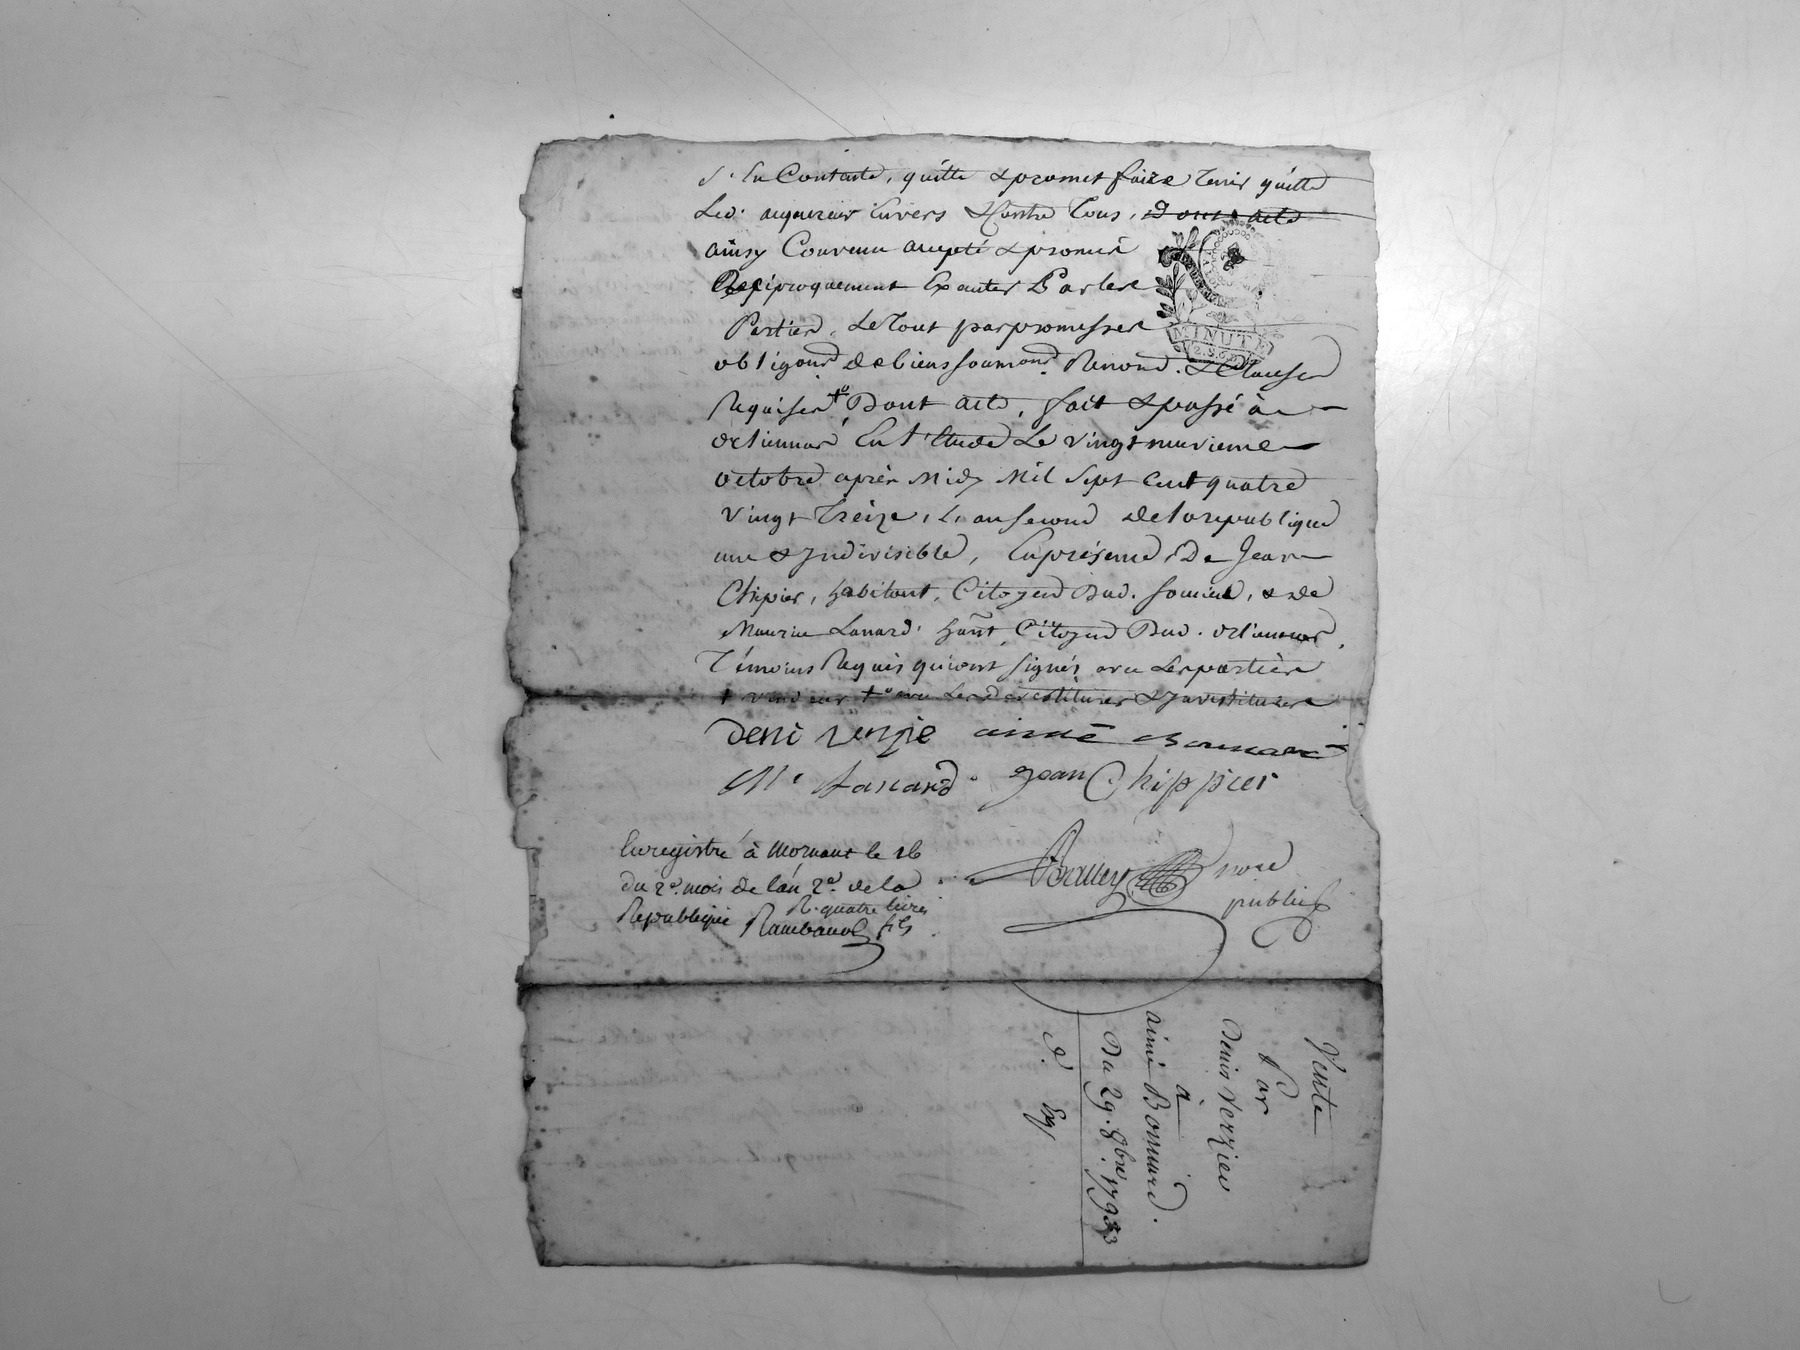 s. En Contente, quitte & promet faire tenir quitte
Led. aquereur Envers & Contre Tous, dont acte
ainsy Convenu accepté & promis
Reciproquement Exauter Par les
Parties, Le Tout par promesses
obligaond de biens soumond Renond. & Clauses
Requises +o Dont acte, fait & passé à
orliennas En l'Etude Le vingt neuvieme
octobre après Midy Mil Sept Cent quatre
vingt Treize, L'an second de la republique
une & Indivisible, En présence De Jean
Chipier, habitant, Citoyen Dud. soucieu, & de
Maurice Lanard, hant Citoyen Dud. orliennas,
Témoins Requis qui ont signés avec Les parties
+ vendeur +o avec Les devestitures & Investitures
deni verzie aimé Bonnard
Mce Lanard. Jean Chippier
Enregistré à Mornant le 16
du 2e. mois de l'an 2e. de la
Republique R. quatre livres
Rambaud fils
nore
public
Vente
Par
Denis Verzieu
a
aimé Bonnard.
Du 29. 8bre. 1793